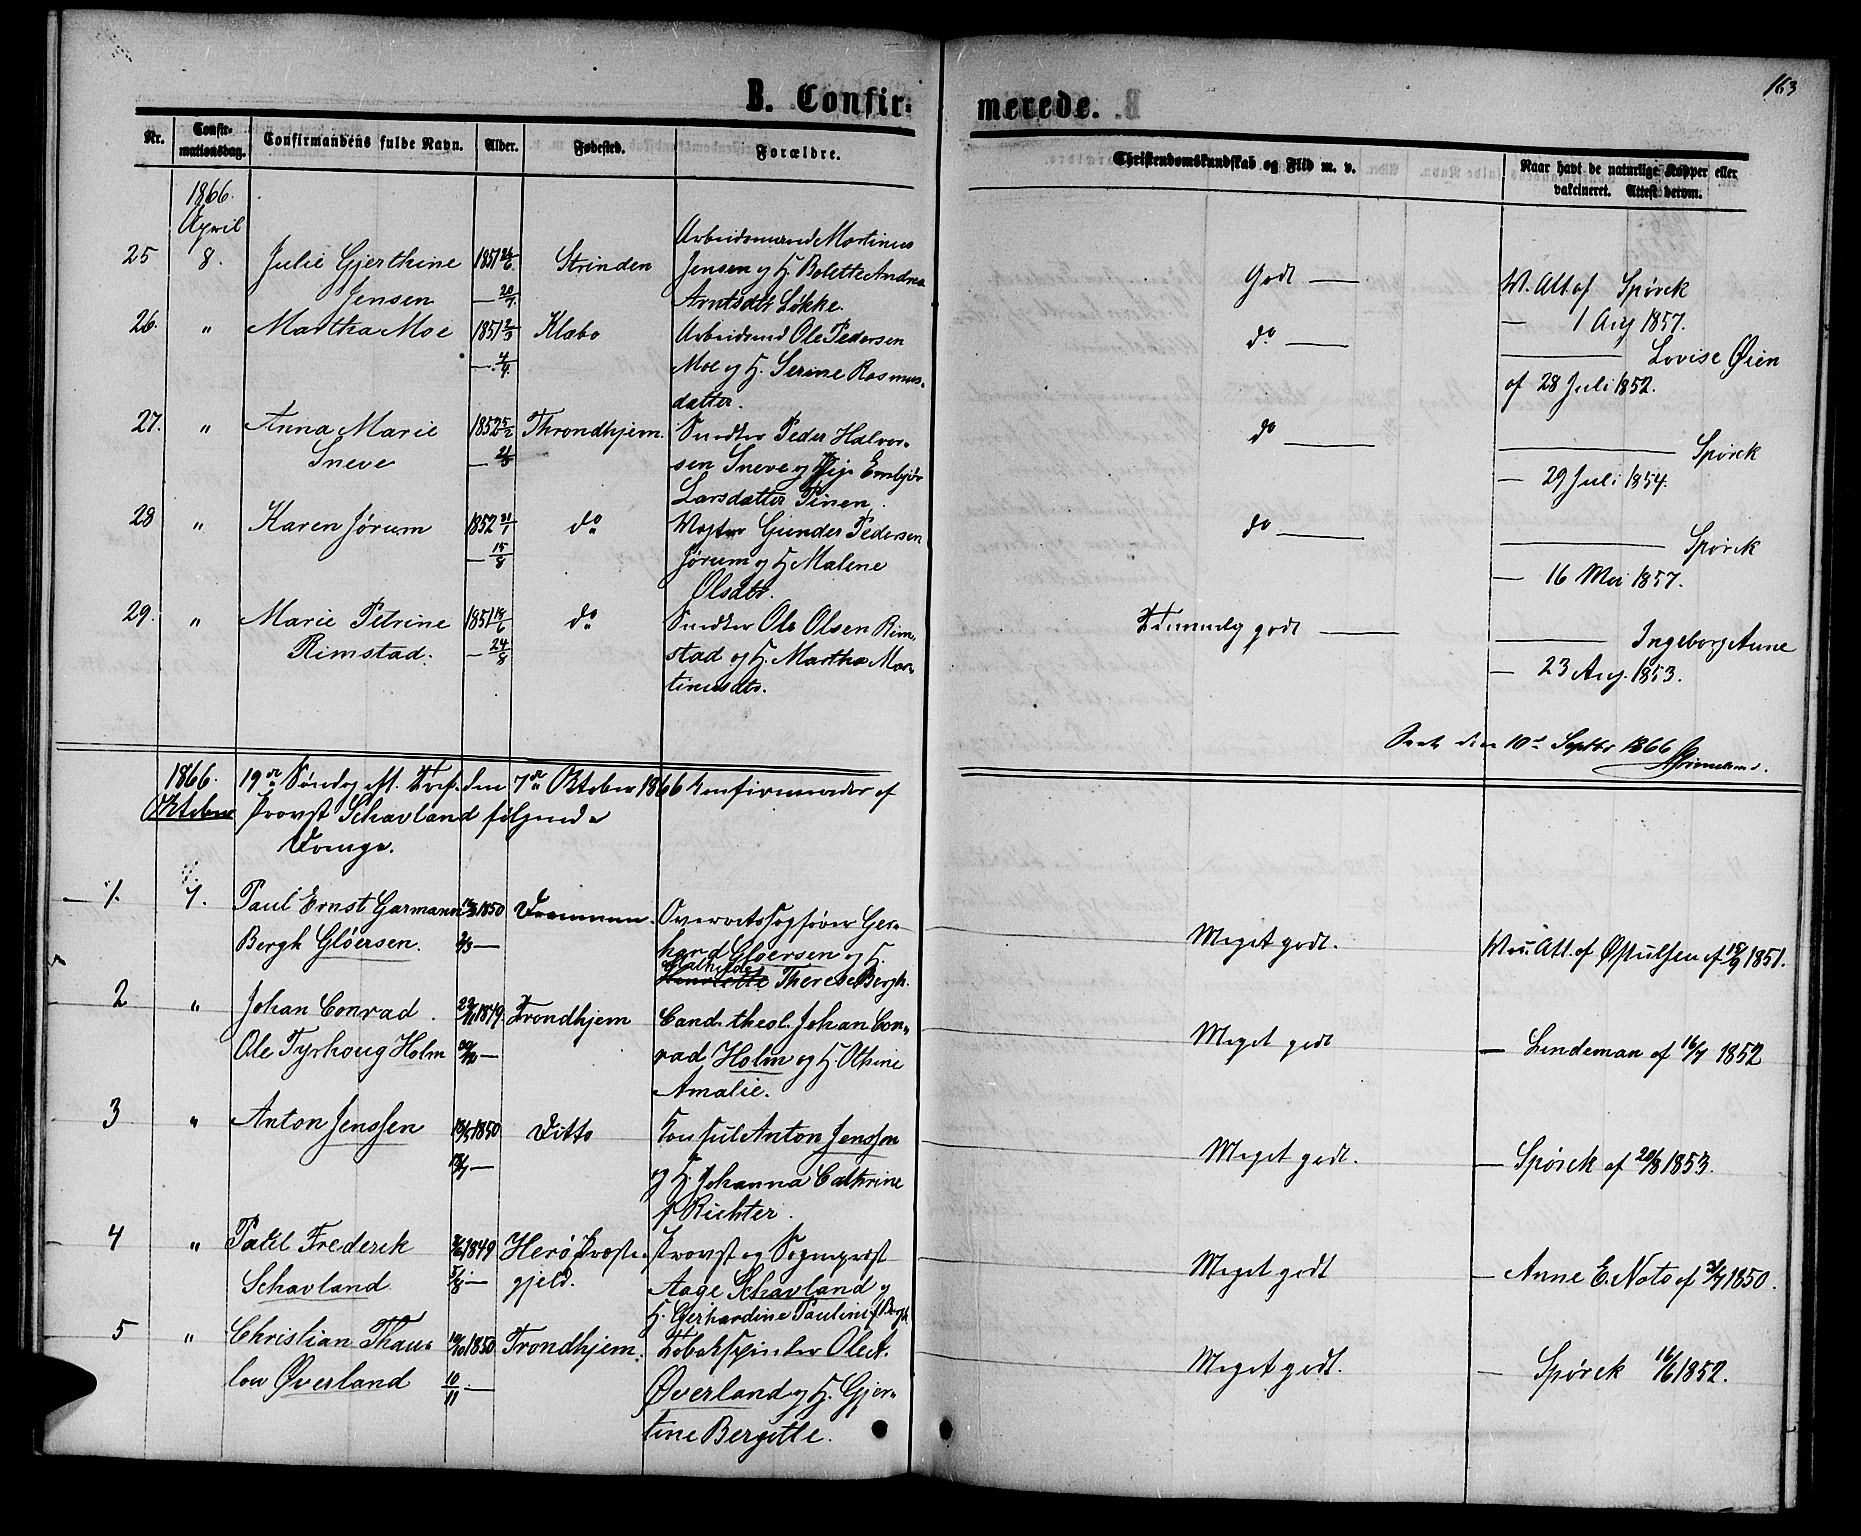 163
B. Confirmerede.
Nr. Confirmationsdag. Confirmandens fulde Navn. Alder. Fødested. Forældre. Christendomskundskab og Flid m. v. Naar havt de naturlige Kopper eller vakcineret. Attest derom.
1866.
April
25 8. Julie Gjerthine Jensen 1851 Strinden Arbeidsmand Martinus Jensen og H. Bolette Andrea Arntsdtr Løkke. Godt — V. Att. af Spørck — 1 Aug 1857.
26. " Martha Moe 1851 2/3 — 4/4. Klæbo Arbeidsmd Ole Pedersen Moe og H. Serine Rasmusdatter. do — Lovise Øien af 28 Juli 1852.
27. " Anna Marie Sneve 1852 5/2 Throndhjem. Snedker Peder Halvorsen Sneve og Pige Embjør Larsdatter Tinen. do — Spørck — 29 Juli 1854.
28 " Karen Jørum 1852 21/1 — 15/8 do Vogter Gunder Pedersen Jørum og H Malene Olsdtr. do — Spørck — 16 Mai 1857.
29. " Marie Petrine Rimstad. 1851 18/6 — 24/8 do Snedker Ole Olsen Rimstad og H. Martha Martinusdtr. Temmelig godt — Ingeborg Aune — 23 Aug. 1853.
Seet den 10de Septbr 1866
1866. Oktober 19de Søndag eft. Tref. den 7de Oktober 1866 konfirmerede af
Provst Schavland følgende
Drenge.
1. 7. Paul Ernst Garmann Bergh Gløersen. 1850 Drammen. Overretssagfører Gerhard Gløersen og H. Mathilde Therese Bergh. Meget godt. Vac. Att. af Østulsen af 19/9 1851.
2 " Johan Conrad Ole Tyrhoug Holm 1849 Trondhjem Cand. theol. Johan Conrad Holm og H. Olsine Amalie. Meget godt — Lindeman af 16/7 1852
3 " Anton Jenssen 1850 Ditto Konsul Anton Jenssen og H. Johanna Cathrine f Richter. Meget godt. — Spørck af 20/8 1853.
4 " Patel Frederik Schavland 1849 Herø Præstegjeld. Provst og Sognepræst Aage Schavland og H. Gerhardine Pauline f Bergh Meget godt — Anne E. Noto af 1850.
5 " Christian Thaulow Øverland 1850 10/11 — Trondhjem. Tobakspinder Ole A. Øverland og H. Gjertine Bergitte. Meget godt. — Spørck 16/6 1852.